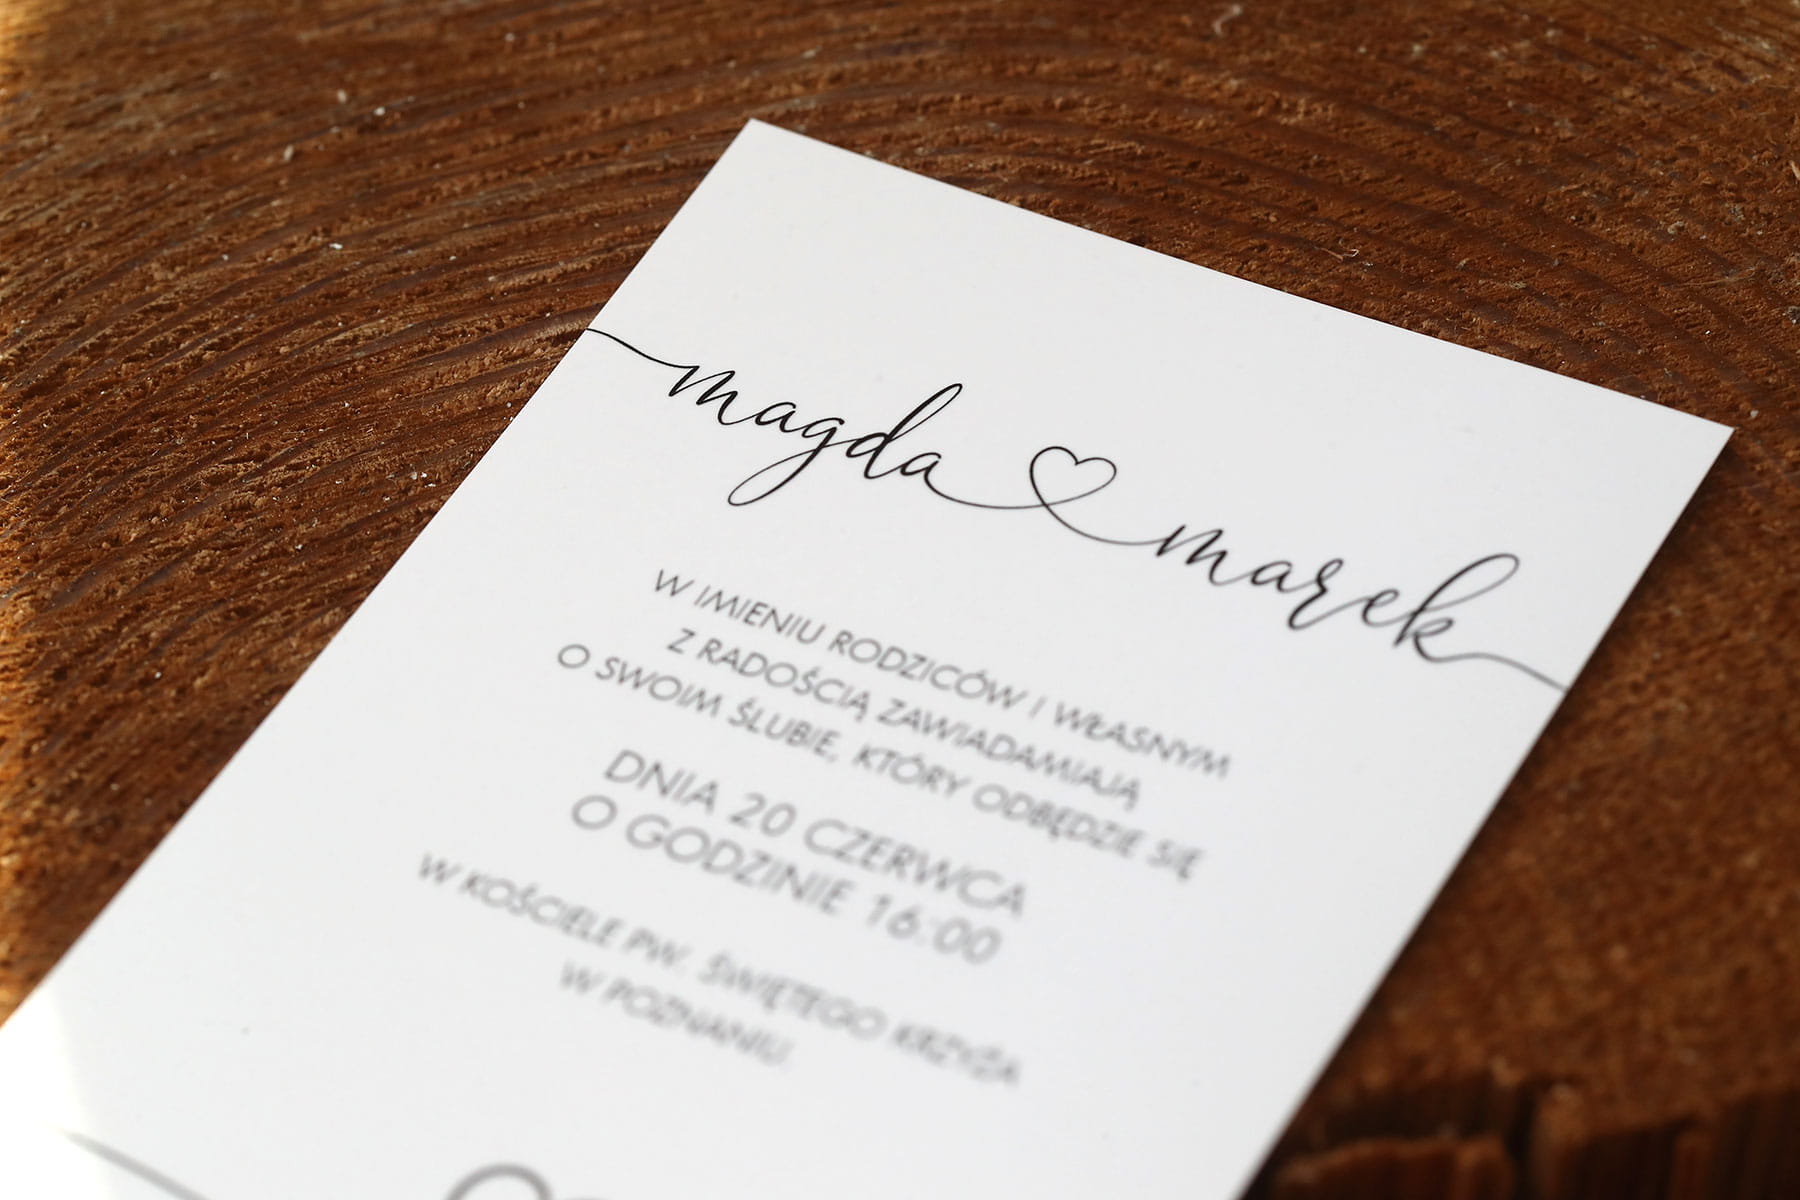 magda marek
W IMIENIU RODZICÓW I WŁASNYM
Z RADOŚCIĄ ZAWIADAMIAJĄ
O SWOIM ŚLUBIE, KTÓRY ODBĘDZIE SIĘ
DNIA 20 CZERWCA
O GODZINIE 16:00
W KOŚCIELE PW. ŚWIĘTEGO KRZYŻA
W POZNANIU.